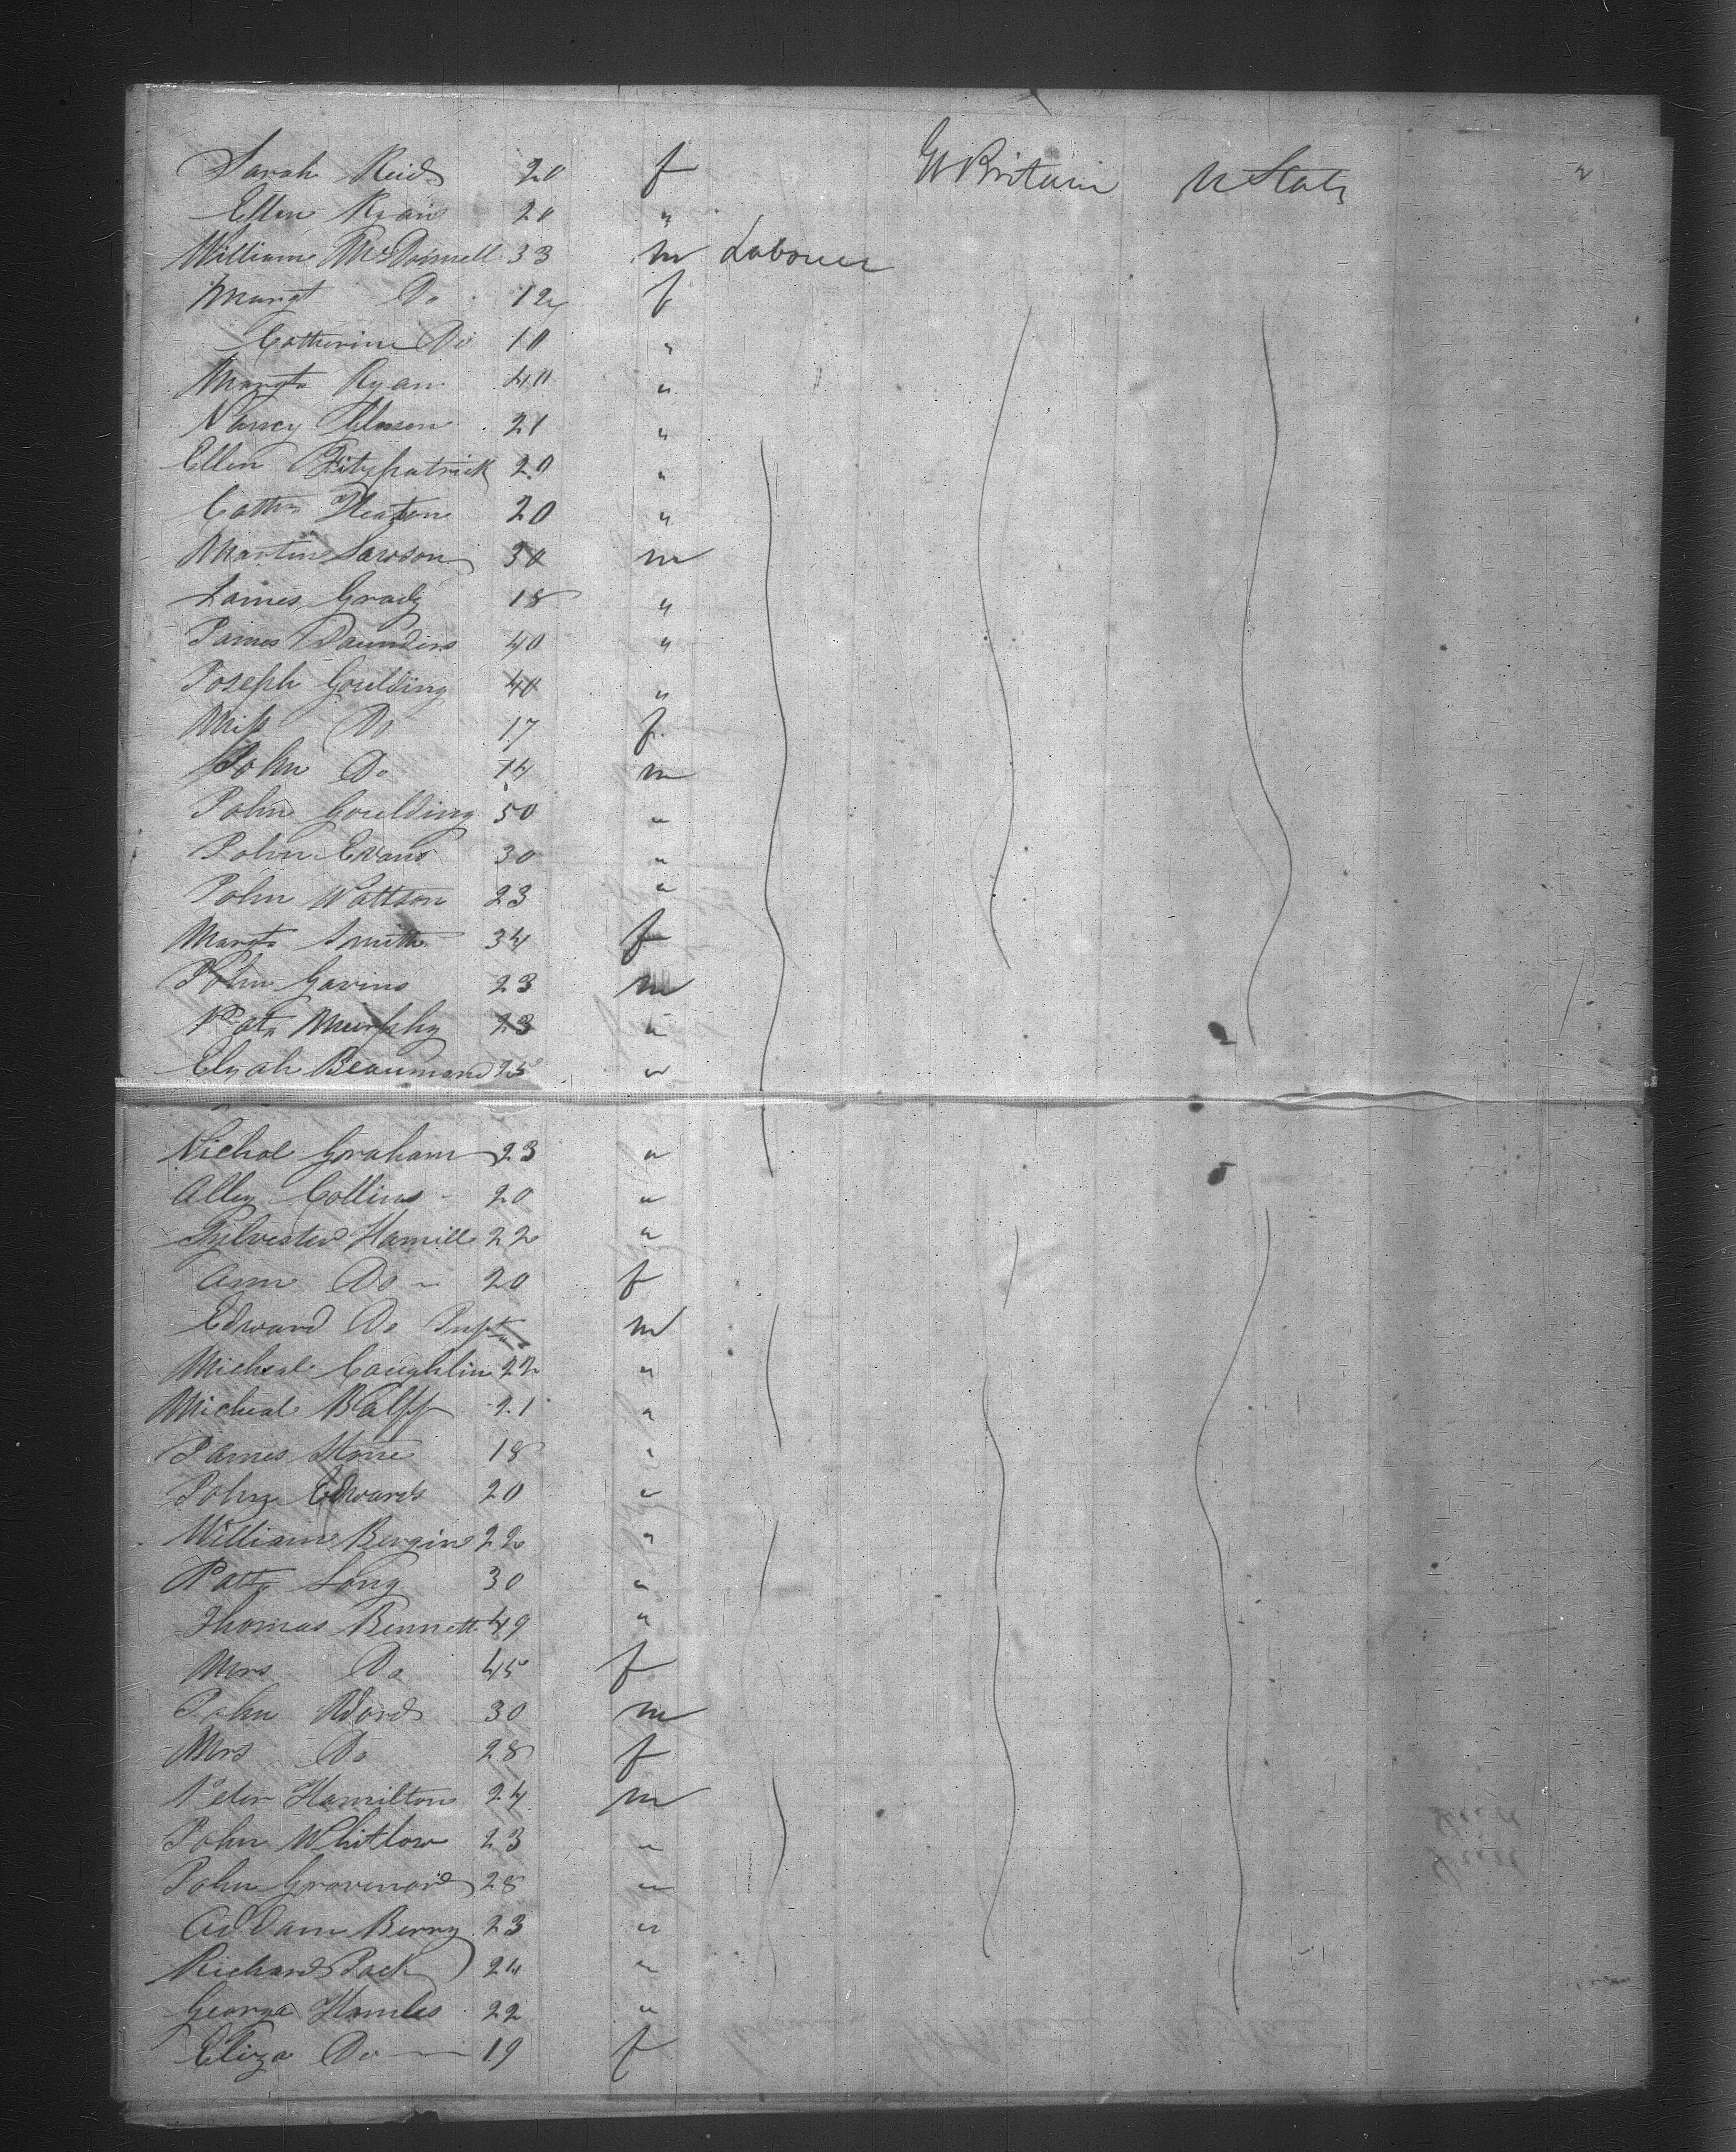 Sarah Reid 20 f Gt Britain U States 2
Ellen Ryan 20 "
William McDonnell 33 m Labourer
Margt Do 12 f
Catherine Do 10 "
Margt Ryan 40 "
Nancy Gleeson 21 "
Ellen Fitzpatrick 20 "
Cathn Heaton 20 "
Martin Lawson 30 m
James Grady 18 "
James Saunders 40 "
Joseph Goulding 40 "
Miss Do 17 f
John Do 14 m
John Goulding 50 "
John Evans 30 "
John Wattson 23 "
Margt Smith 34 f
John Gavins 23 m
Pat Murphy 23 "
Elijah Beaumond 25 "
Nichol Graham 23 "
Alley Collins 20 "
Sylvester Hamill 22 "
Ann Do 20 f
Edward Do Inft m
Micheal Coughlin 22 "
Micheal Balff 21 "
James Stone 18 "
John Edwards 20 "
William Bergin 22 "
Patt Long 30 "
Thomas Bennett 49 "
Mrs Do 45 f
John Word 30 m
Mrs Do 28 f
Peter Hamilton 24 m
John Whitlow 23 "
John Grovenor 28 "
Addam Berry 23 "
Richard Pack 24 "
George Hamles 22 "
Eliza Do 19 f